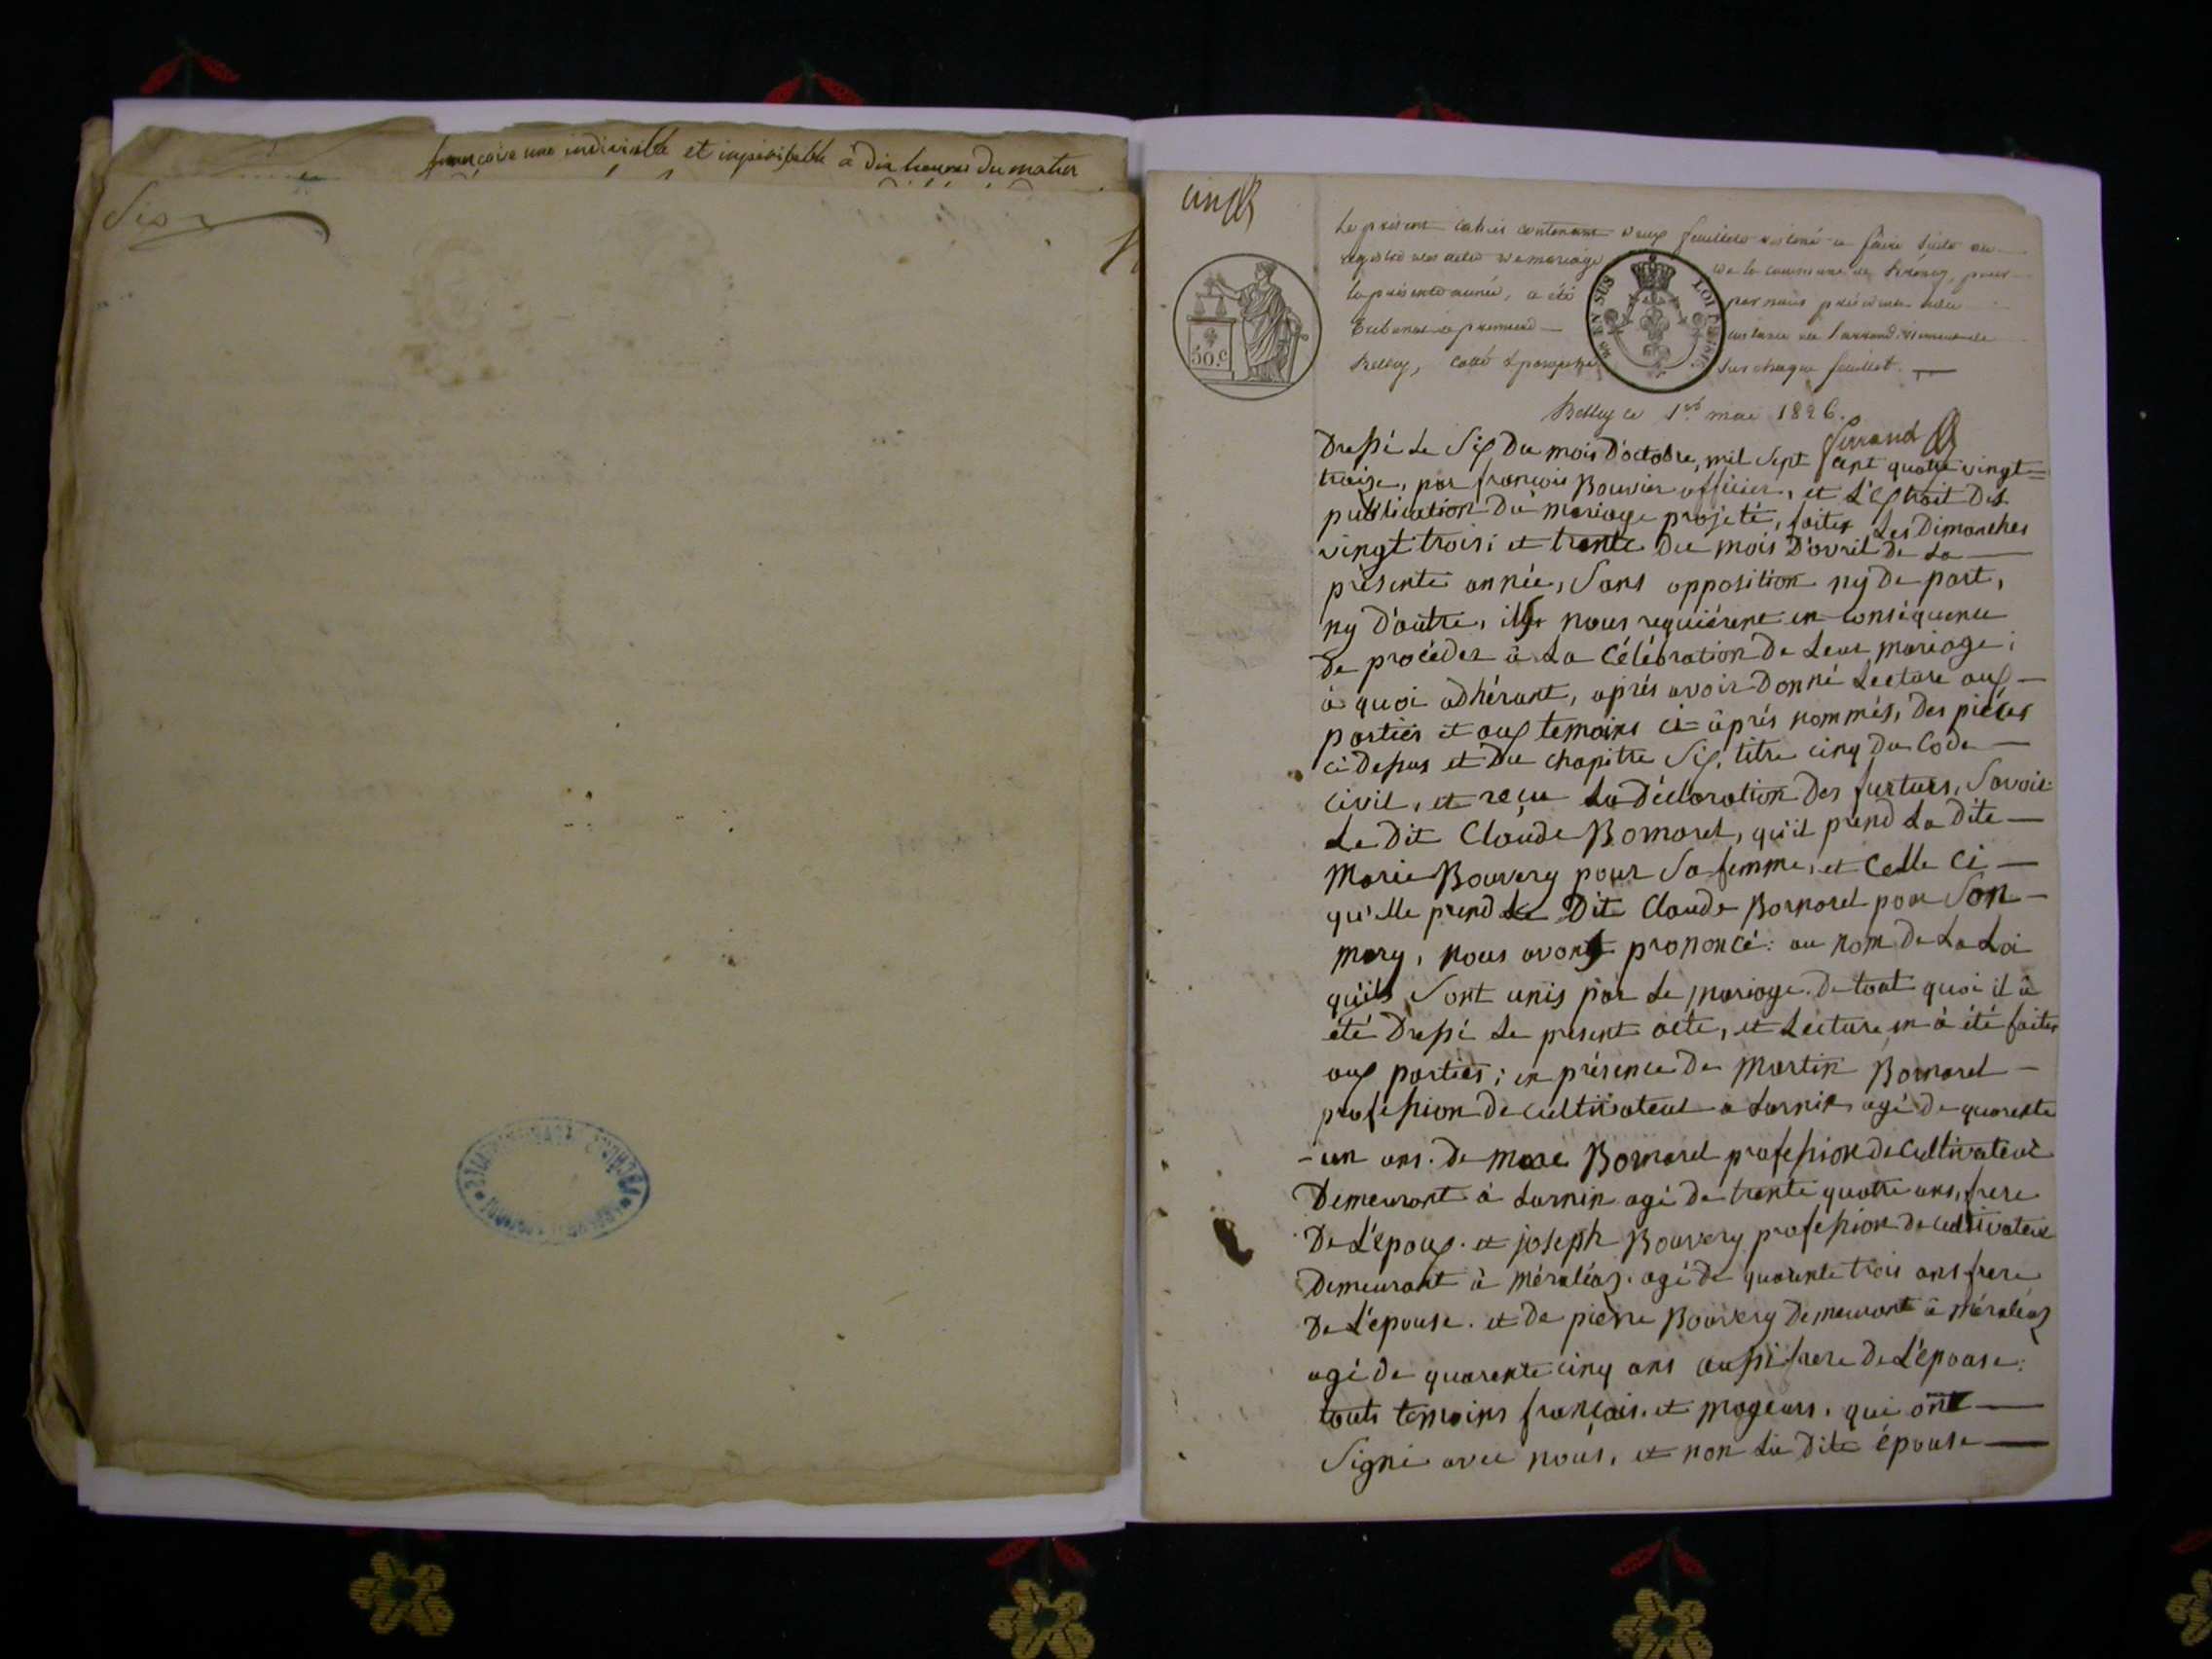 française une indivisible et impérissable à dix heures du matin
Six
cinq
Le présent cahier contenant deux feuillets destiné à faire suite au
registre des actes de mariage de la commune de pour
la présente année, a été par nous président du
Tribunal de première instance de l'arrondissement de
Belley, coté & paraphé sur chaque feuillet.
EN SUS
LOI
50.c
Belley ce 1er mai 1826.
Ferrand
Dressé le Six du mois D'octobre, mil Sept Cent quatre vingt=
traize, par françois Bouvier officier, et L'Extrait Des
publication Du mariage projeté, faites Les Dimanches
vingt trois; et trente Du mois D'avril De La
présente année, Sans opposition ny De part,
ny D'autre, ils nous requiérent en conséquence
De procéder à La Célébration De Leur mariage;
à quoi adhérant, aprés avoir Donné Lecture aux
parties et aux temoins ci-âprés nommés, Des piéces
ci Dessus et Du chapitre Six, titre cinq Du Code
Civil, et reçu La Déclaration Des furturs, Savoir
Le Dit Claude Bornarel, qu'il prend La Dite
Marie Bouvery pour Sa femme, et Celle Ci
qu'elle prend Le Dit Claude Bornarel pour Son
mary, nous avons prononcé: au nom De La Loi
qu'ils Sont unis par Le mariage. De tout quoi il à
eté Dressé Le présent acte, et Lecture en à été faites
aux parties; en présence De Martin Bornarel
profession De cultivateur a Larnin agé De quarente
-un ans. De marc Bornarel profession De Cultivateur
Demeurant à Larnin agé De trente quatre ans, frere
De L'époux. et joseph Bouvery profession De cultivateur
Demeurant à Méraléaz. agé De quarente trois ans frere
De L'épouse. et De pierre Bouvery Demeurant à Méraléaz
agé De quarente cinq ans aussi frere De L'épouse:
touts temoins français. et mageurs. qui ont
Signé avec nous, et non La Dite épouse